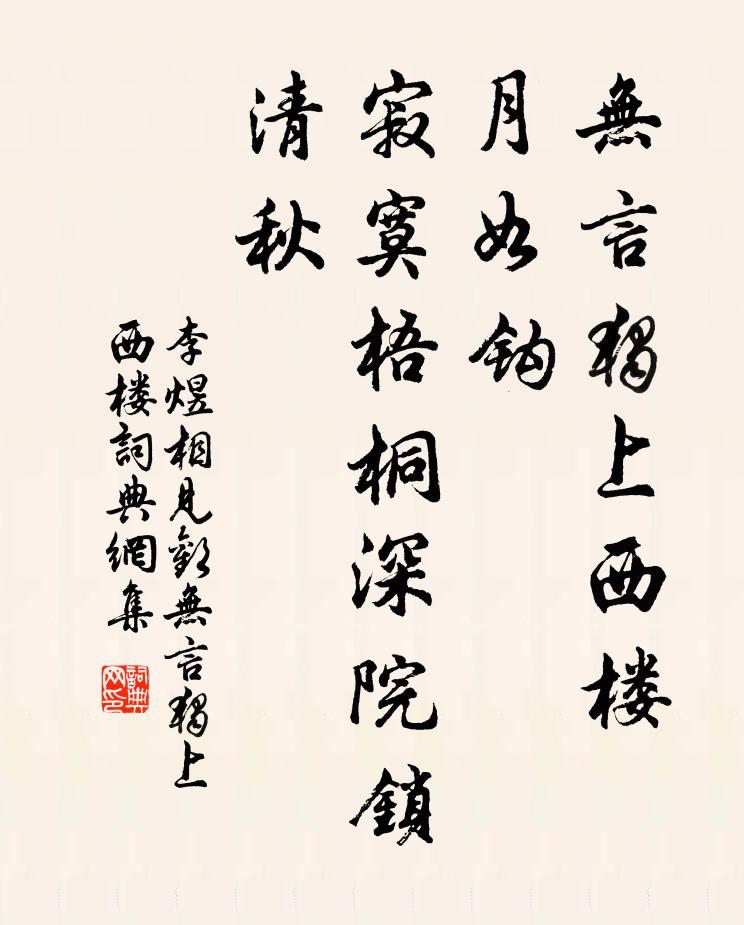 無言獨上西楼
月如鈎
寂寞梧桐深院鎖
清秋
李煜相見歡無言獨上
西楼詞典網集
詞典网印